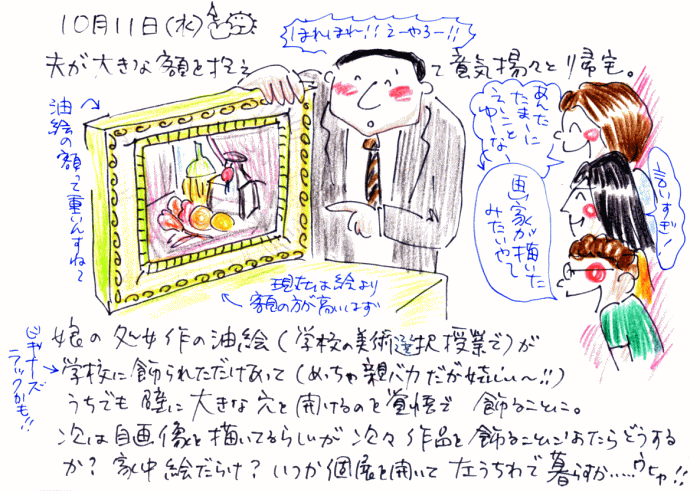 10月11日(水)
ほれほれ!!えーやろー!!
夫が大きな額を抱えて意気揚々と帰宅。
油絵の額って重いんすねぇ
あんた
たまーに
えーこと
ゆーなぁ
画家が描いた
みたいやて
言いすぎ!
現在は絵より
額の方が高いはず
娘の処女作の油絵(学校の美術選択授業で)が
ビギナーズ
ラックかも!!
学校に飾られただけあって(めっちゃ親バカだが嬉しい〜!!)
うちでも壁に大きな穴を開けるのを覚悟で飾ることに。
次は自画像を描いてるらしいが次々作品を飾ることになったらどうする
か?家中絵だらけ?いつか個展を開いて左うちわで暮らすか……ウヒャ!!